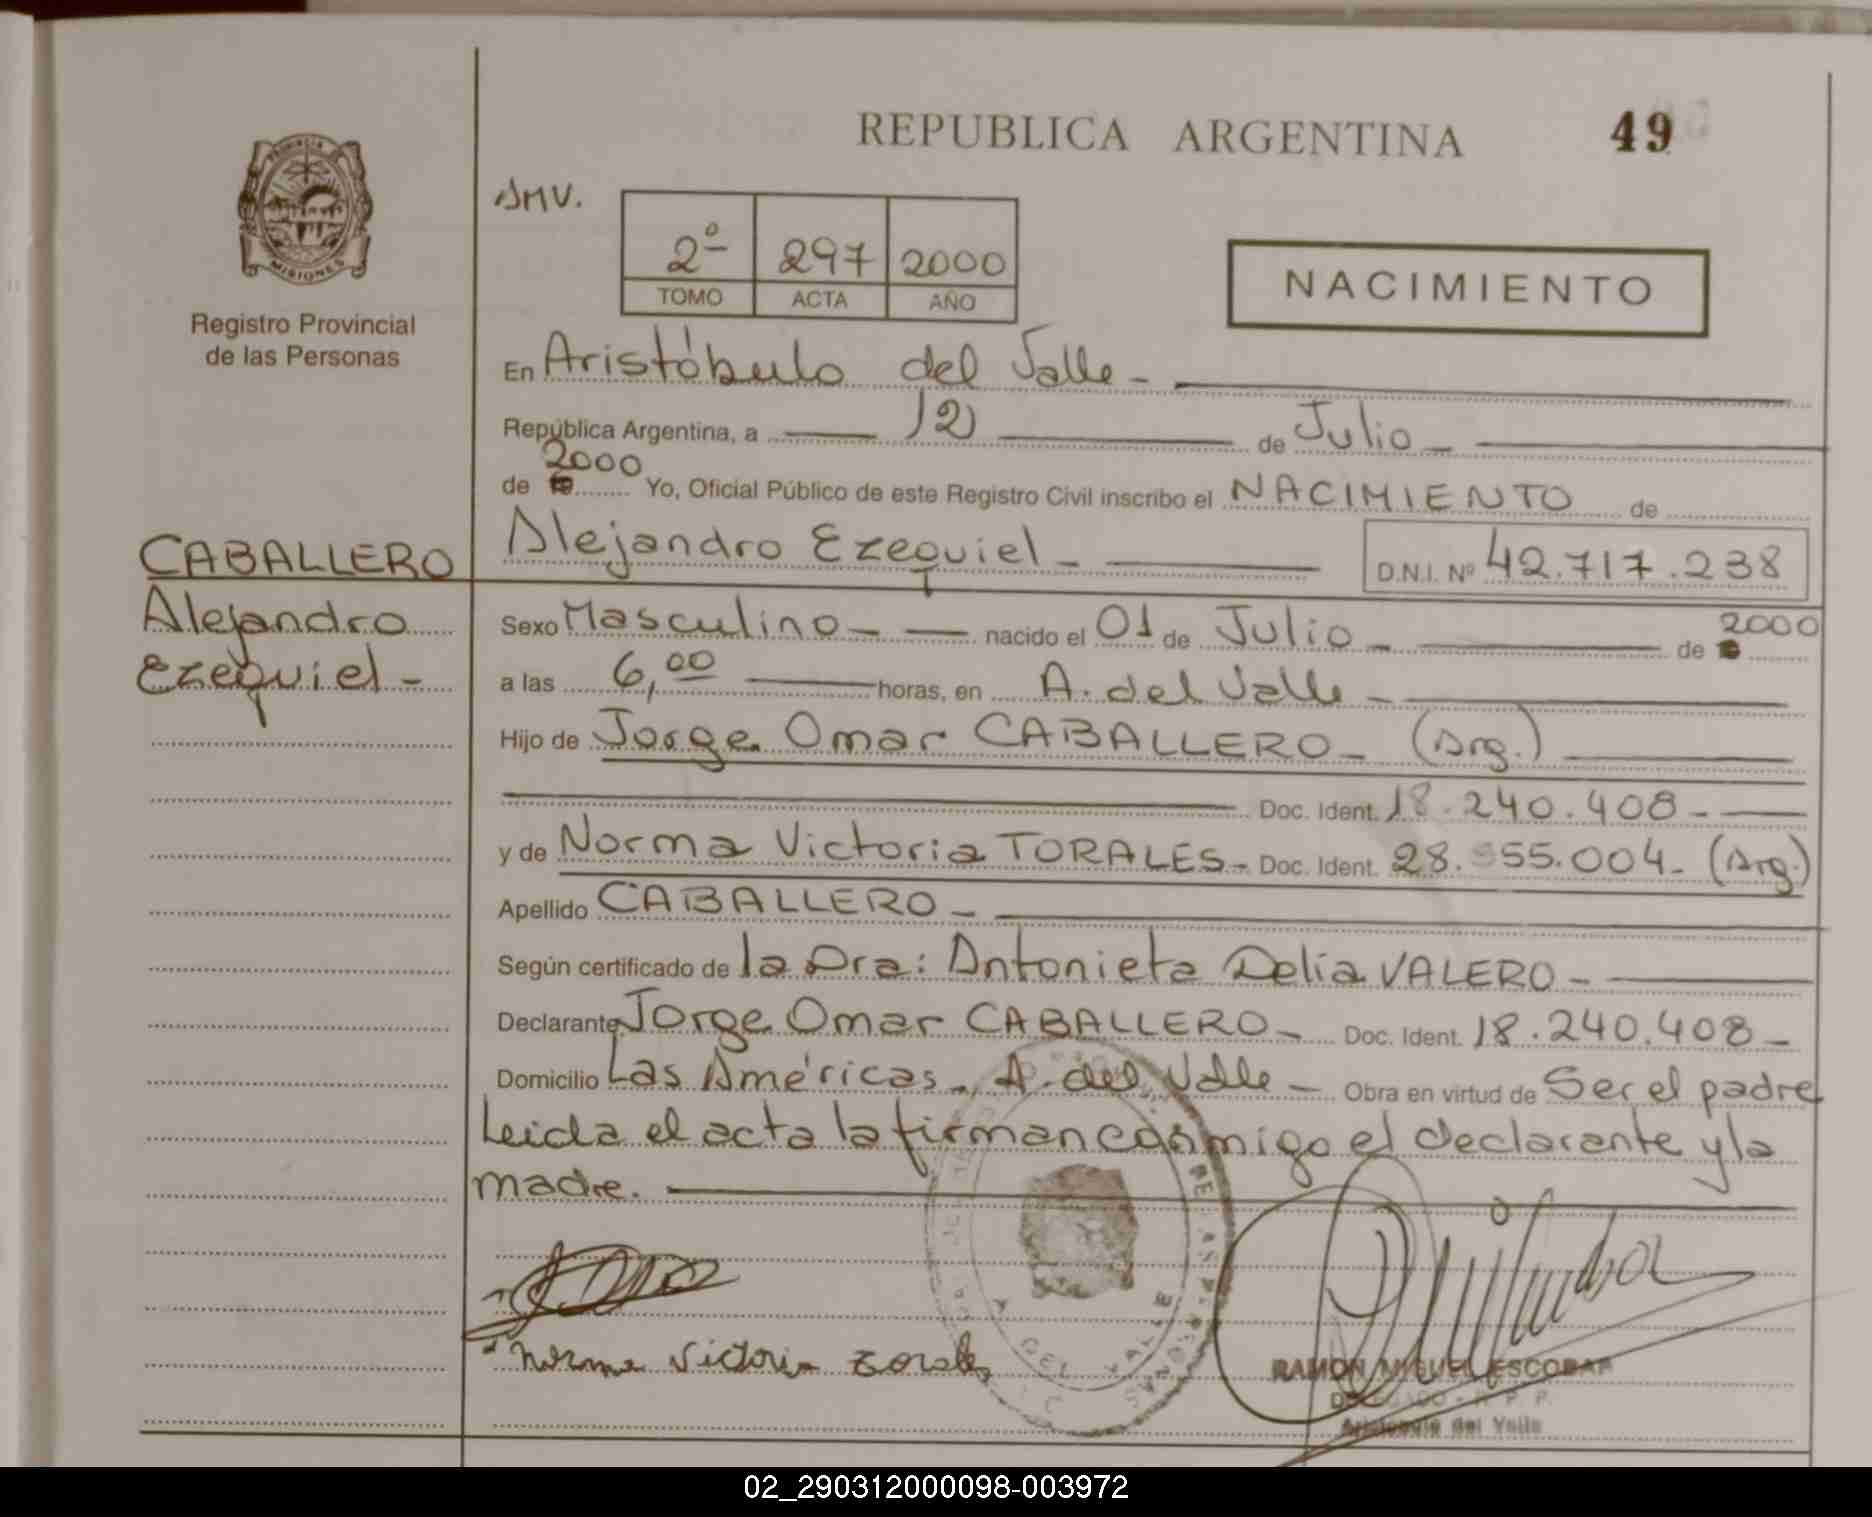 REPUBLICA ARGENTINA
49
PROVINCIA DE
MISIONES
Registro Provincial
de las Personas
AMV.
2º 297 2000
TOMO ACTA AÑO
NACIMIENTO
En Aristóbulo del Valle -
República Argentina, a 12 de Julio -
de 2000 Yo, Oficial Público de este Registro Civil inscribo el NACIMIENTO de
Alejandro Ezequiel - D.N.I. Nº 42.717.238
CABALLERO
Alejandro
Ezequiel -
Sexo Masculino - nacido el 01 de Julio - de 2000
a las 6,00 horas, en A. del Valle -
Hijo de Jorge Omar CABALLERO - (Arg.)
Doc. Ident. 18.240.408 -
y de Norma Victoria TORALES - Doc. Ident. 28. 55.004 - (Arg.)
Apellido CABALLERO -
Según certificado de la Dra: Antonieta Delia VALERO -
Declarante Jorge Omar CABALLERO - Doc. Ident. 18.240.408 -
Domicilio Las Américas - A. del Valle - Obra en virtud de Ser el padre
Leida el acta la firman conmigo el declarante y la
madre.
Norma Victoria Torales
DEL VALLE
RAMON MIGUEL ESCOBAR
DELEGADO - R. P. P.
Aristobulo del Valle
02_290312000098-003972